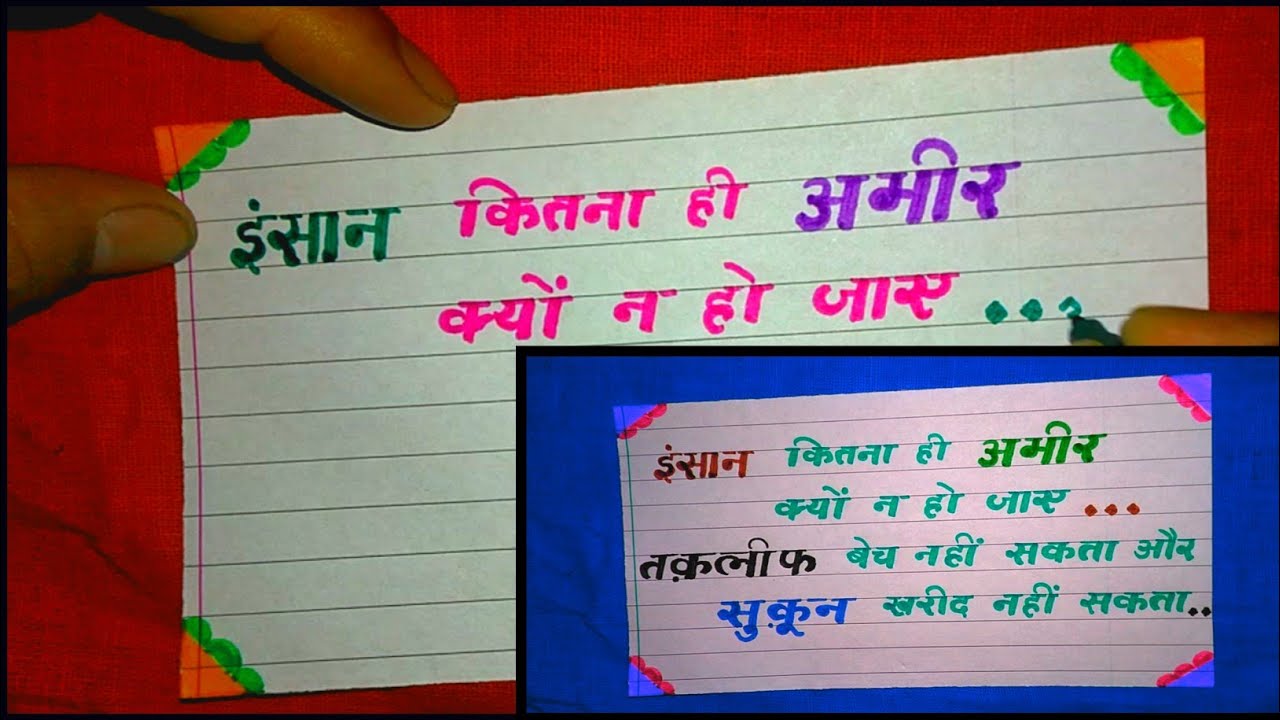 इंसान कितना ही अमीर
क्यों न हो जाए ...
इंसान कितना ही अमीर
क्यों न हो जाए ...
तक़लीफ बेच नहीं सकता और
सुक़ून खरीद नहीं सकता..